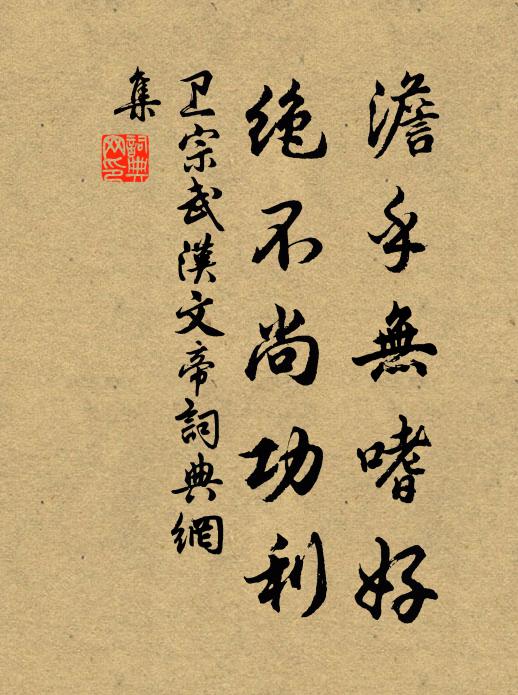 澹乎無嗜好
绝不尚功利
卫宗武漢文帝詞典網
集
詞典網印